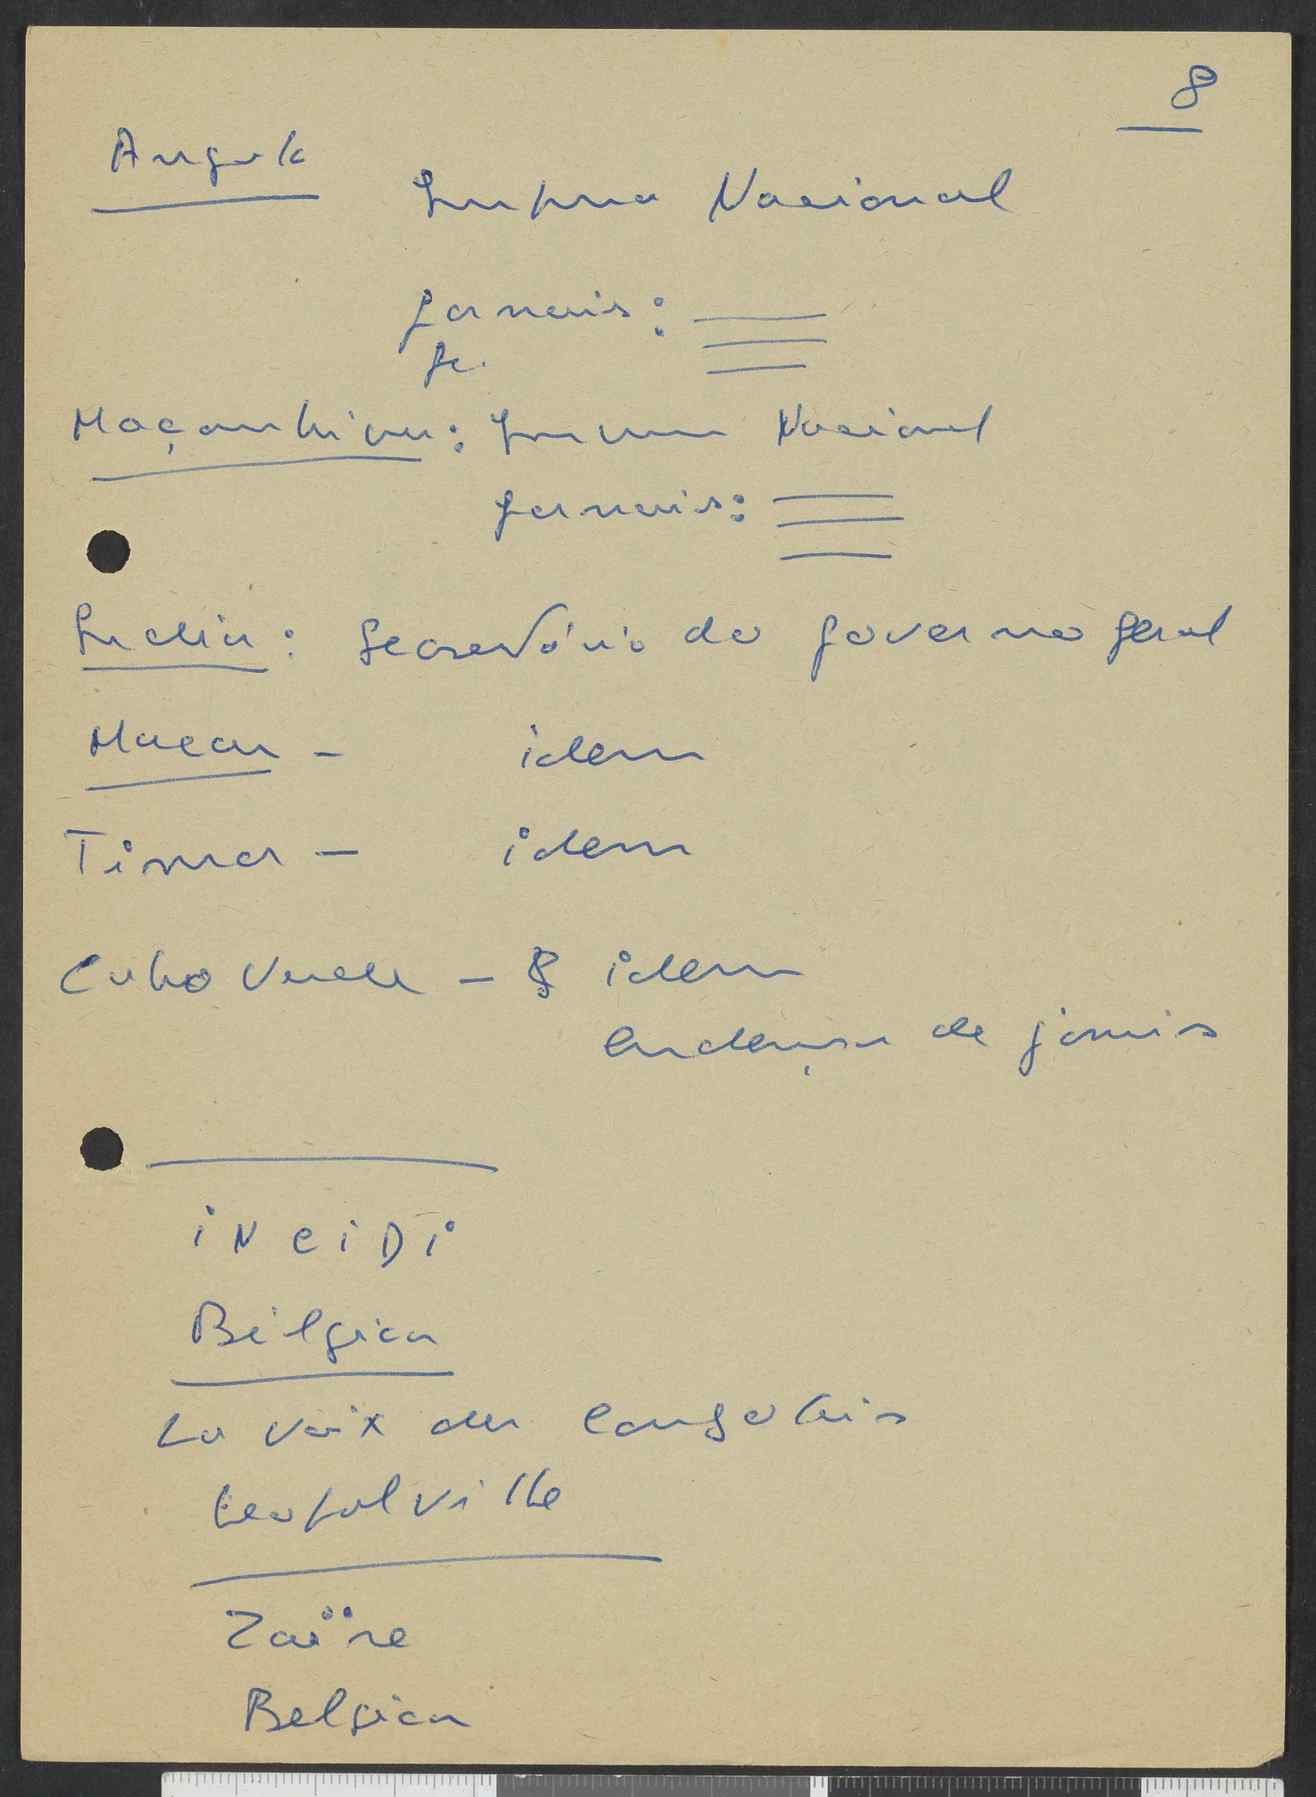 8
Angola
Imprensa Nacional
Jornais:
Moçambique: Imprensa Nacional
Jornais:
India: Secretário do governo geral
Macau - idem
Timor - idem
Cabo Verde - idem
endereço de jornais
iNCiDi
Bélgica
La Voix du Congolais
Leopolville
Zaïre
Belgica